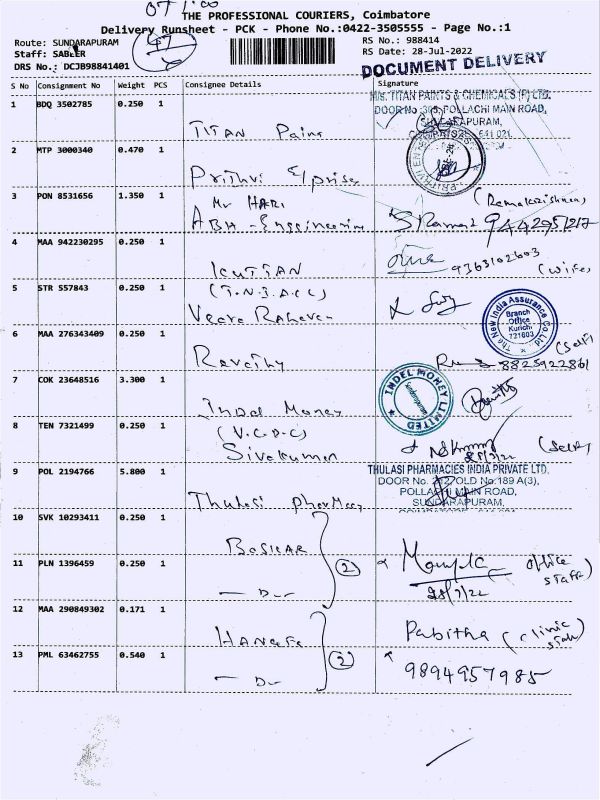 THE PROFESSIONAL COURIERS, Coimbatore
Delivery Runsheet - PCK - Phone No.:0422-3505555 - Page No.:1
Route: SUNDARAPURAM
RS No.: 988414
Staff: SABEER
RS Date: 28-Jul-2022
DRS No.: DCJB98841401
DOCUMENT DELIVERY
S No Consignment No Weight PCS Consignee Details Signature
M/s. TITAN PAINTS & CHEMICALS (P) LTD.
1 BDQ 3502785 0.250 1
DOOR No 305, POLLACHI MAIN ROAD,
SUNDARAPURAM,
COIMBATORE - 641 021.
TITAN Pains
2 MTP 3000340 0.470 1
Prithvi E/prises
3 PON 8531656 1.350 1
Mr HARI
ABH - Engineering
(Ramakrishnan)
4 MAA 942230295 0.250 1
KUTTAN
9363102603
(wife)
5 STR 557843 0.250 1
Veera
The New India Assurance Co Ltd
Branch
Office
Kurichi
721603
6 MAA 276343409 0.250 1
Revathy
8825922861
(Self)
7 COK 23648516 3.300 1
Indel Money
INDEL MONEY LIMITED
Sundarapuram
8 TEN 7321499 0.250 1
(V.C.D.C)
Sivakumar
(Self)
9 POL 2194766 5.800 1
Thulasi pharmacy
THULASI PHARMACIES INDIA PRIVATE LTD.
DOOR No. 242/OLD No:189 A(3),
POLLACHI MAIN ROAD,
SUNDARAPURAM,
10 SVK 10293411 0.250 1
BOSKAR
(2)
11 PLN 1396459 0.250 1
— Do —
office
staff)
28/7/22
12 MAA 290849302 0.171 1
HANEEFA
(2)
Pabitha (clinic
staff)
13 PML 63462755 0.540 1
— Do —
9894957985